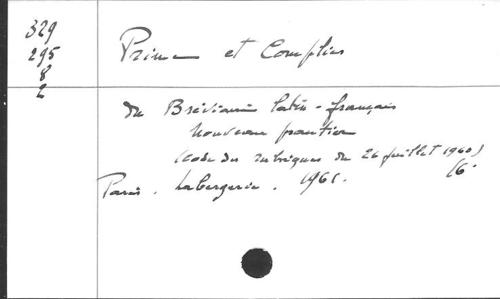 329
295
8
2
Prime et Complies
du Bréviaire latin-français
nouveau psautier
(code des rubriques du 26 juillet 1960)
16.
Paris. Labergerie. 1961.